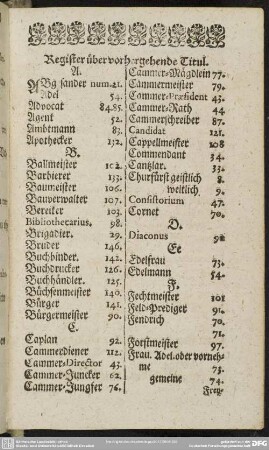 Register über vorhergehende Titul.
A.
Abgesander num. 21.
Adel 54.
Advocat 84.85.
Agent 52.
Ambtmann 83.
Apothecker 132.
B.
Ballmeister 102.
Barbierer 133.
Baumeister 106.
Bauverwalter 107.
Bereiter 103.
Bibliothecarius. 98.
Brigadier. 29.
Bruder 146.
Buchbinder. 142.
Buchdrucker 126.
Buchhändler. 125.
Büchsenmeister 140.
Bürger 141.
Bürgermeister 90.
C.
Caplan 92.
Cammerdiener 112.
Cammer-Director 43.
Cammer-Juncker 62.
Cammer-Jungfer 76.
Cammer-Mägdlein 77.
Cammermeister 79.
Cammer-Præsident 43.
Cammer-Rath 44.
Cammerschreiber 87.
Candidat 121.
Cappellmeister 108
Commendant 34.
Cantzlar. 33.
Churfürst geistlich 8.
weltlich 9.
Consistorium 47.
Cornet 70.
D.
Diaconus 92
Ee
Edelfrau 73.
Edelmann 54.
F.
Fechtmeister 101
Feld-Prediger 91.
Fendrich 70.
71.
Forstmeister 97.
Frau. Adel. oder vorneh-
me 73.
gemeine 74.
Frey-